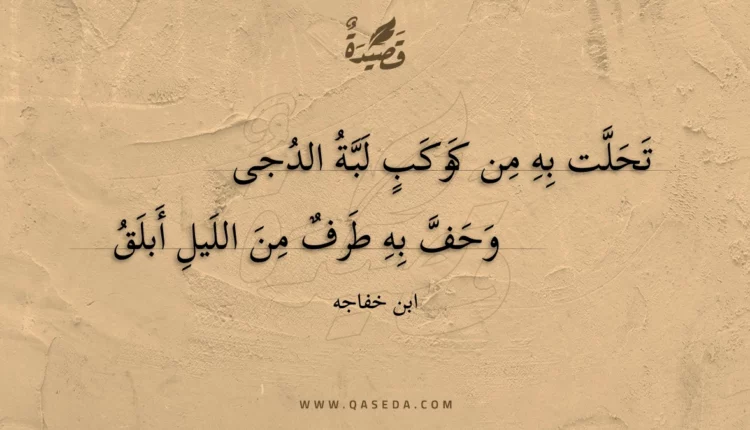 قَصِيدَةٌ
تَحَلَّت بِهِ مِن كَوكَبٍ لَبَّةُ الدُجى
وَحَفَّ بِهِ طَرفٌ مِنَ اللَيلِ أَبلَقُ
ابن خفاجه
WWW.QASEDA.COM